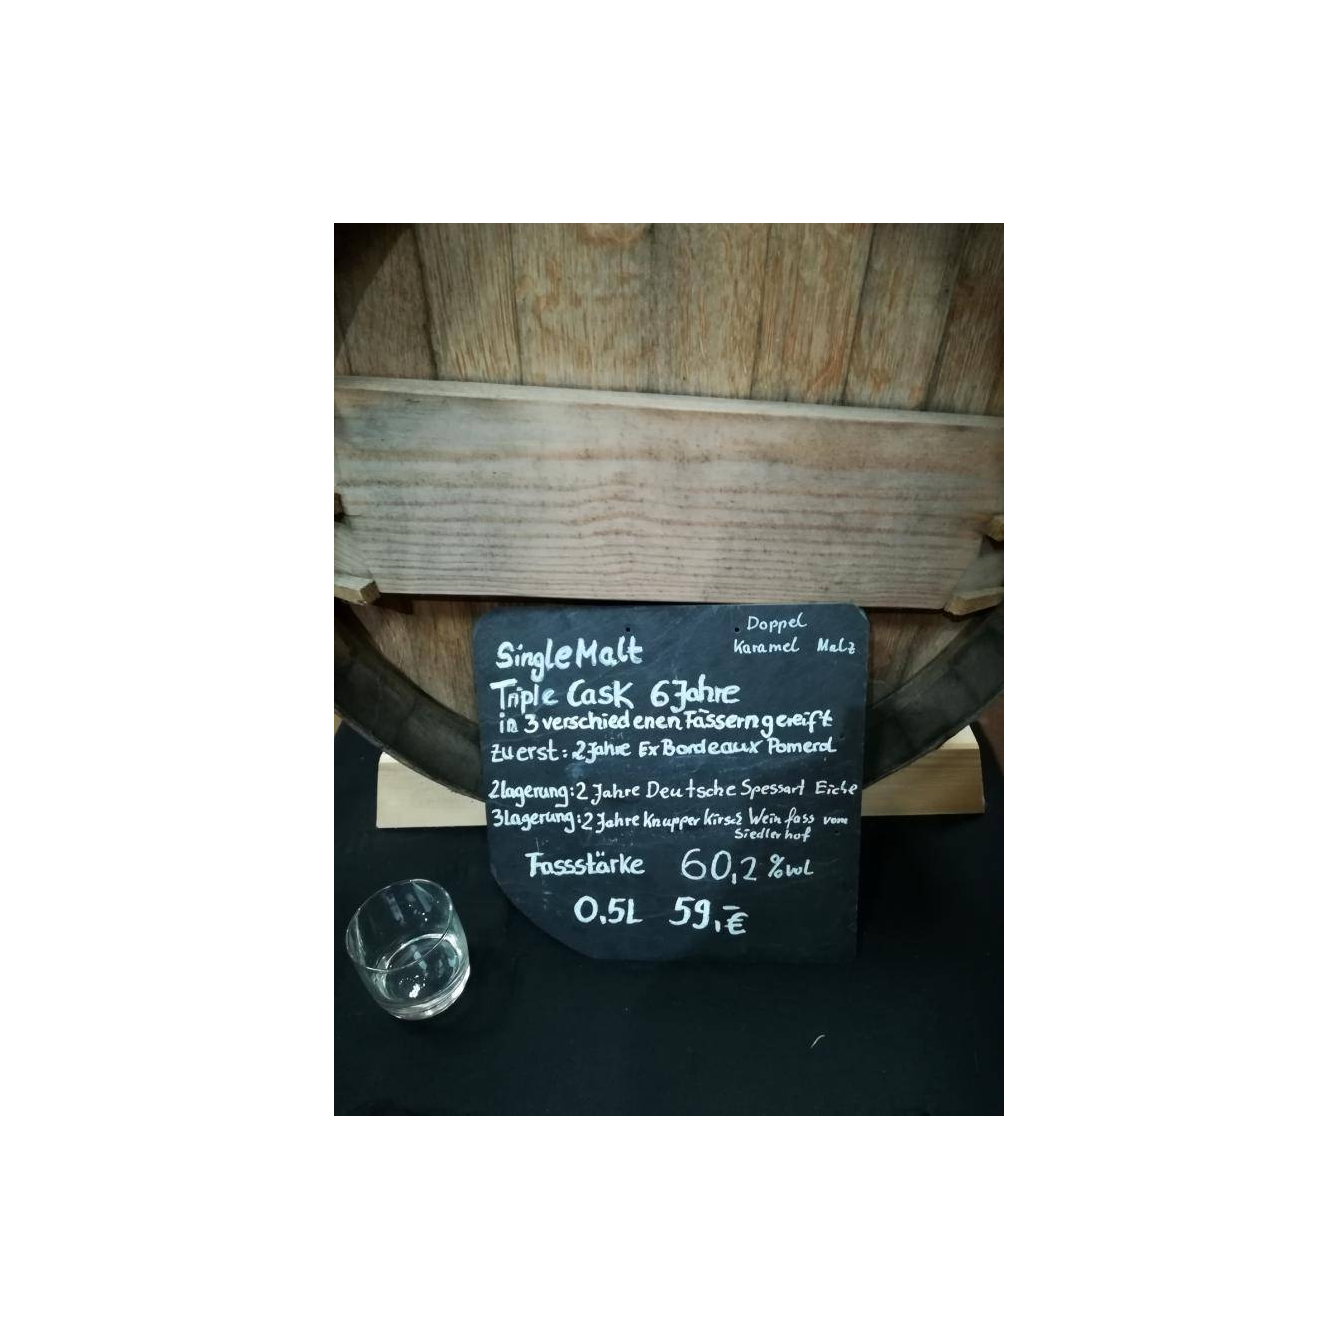 Doppel
Karamel Malz
Single Malt
Triple Cask 6 Jahre
in 3 verschiedenen Fässern gereift
zuerst: 2 Jahre Ex Bordeaux Pomerol
2 lagerung: 2 Jahre Deutsche Spessart Eiche
3 Lagerung: 2 Jahre Knupper Kirsch Wein fass vom
Siedlerhof
Fassstärke 60,2 % vol
0,5L 59,-€